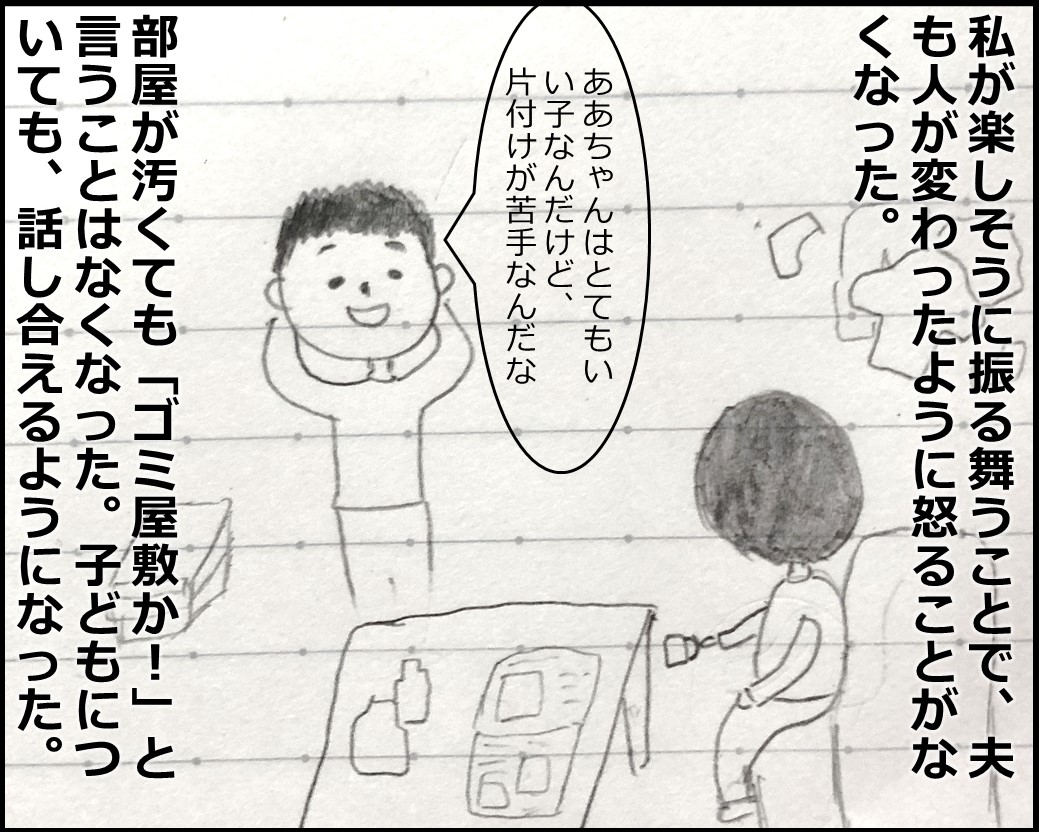 私が楽しそうに振る舞うことで、夫
も人が変わったように怒ることがな
くなった。
ああちゃんはとてもい
い子なんだけど、
片付けが苦手なんだな
部屋が汚くても「ゴミ屋敷か！」と
言うことはなくなった。子どもにつ
いても、話し合えるようになった。